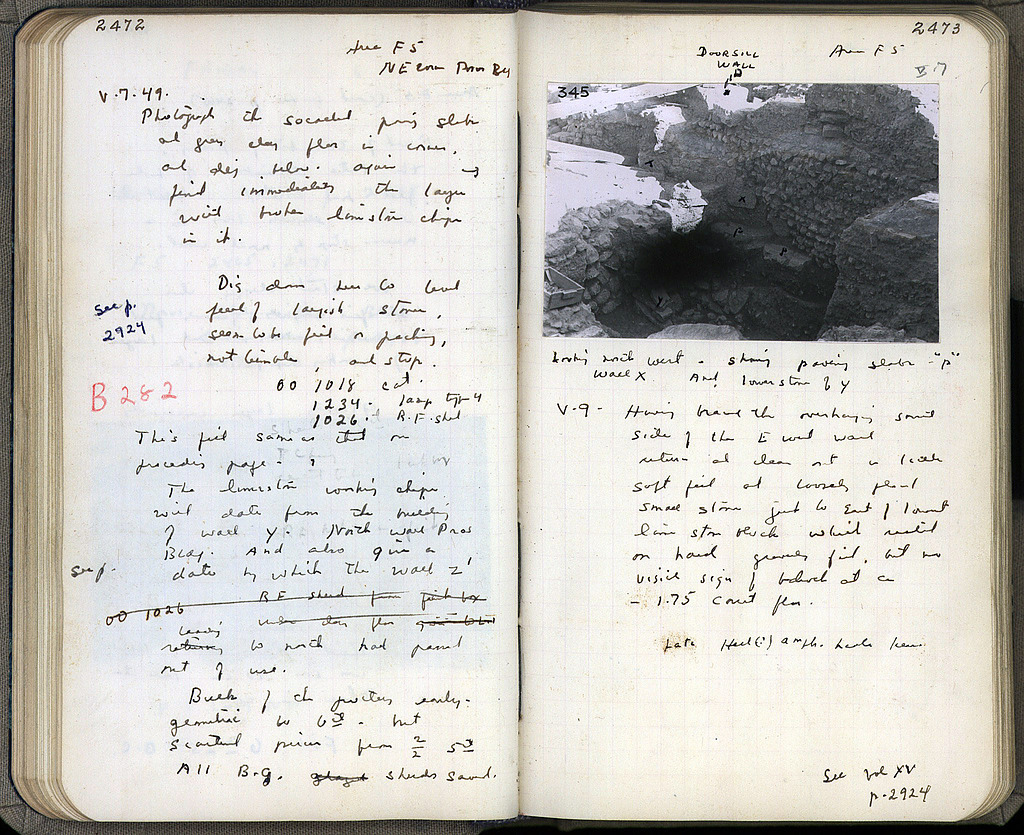 2472
Area F5
NE corn Poros Bg
V.7.49.
Photograph the socalled paving slabs
at green clay floor in corner,
and dig below. again →
find immediately the layer
with broken limestone chips
in it.
Dig down here to level
full of largish stones,
seem to be fill or packing,
not, and stop.
See p.
2924
B 282
00 1018 cat.
1234. lamp type 4
1026. R.F. sherd
This fill same as that on
preceding page - ?
The limestone working chips
will date from the building
of wall Y. North wall Poros
Bldg. And also give a
date by which the wall Z'
See p.
00 1026 R F sherd from
under clay floor
leaving
returning to north had passed
out of use.
Bulk of the pottery early-
geometric to 6th - but
scattered pieces from 2/2 5th
All B.g. glazed sherds saved.
2473
DOORSILL
WALL
D
Area F5
V 7
345
X
P
P
Y
Looking north west - showing paving slabs - "P"
Wall X And lower stone of Y
V-9- Having braced the overhanging south
side of the E west wall
return and clean out a little
soft fill and loosely placed
small stone just to East of lowest
lime stone block which rested
on hard gravelly fill, but no
visible sign of bedrock at ca
- 1.75 court floor.
Late Hell(?) amph. handle here
See vol XV
p. 2924